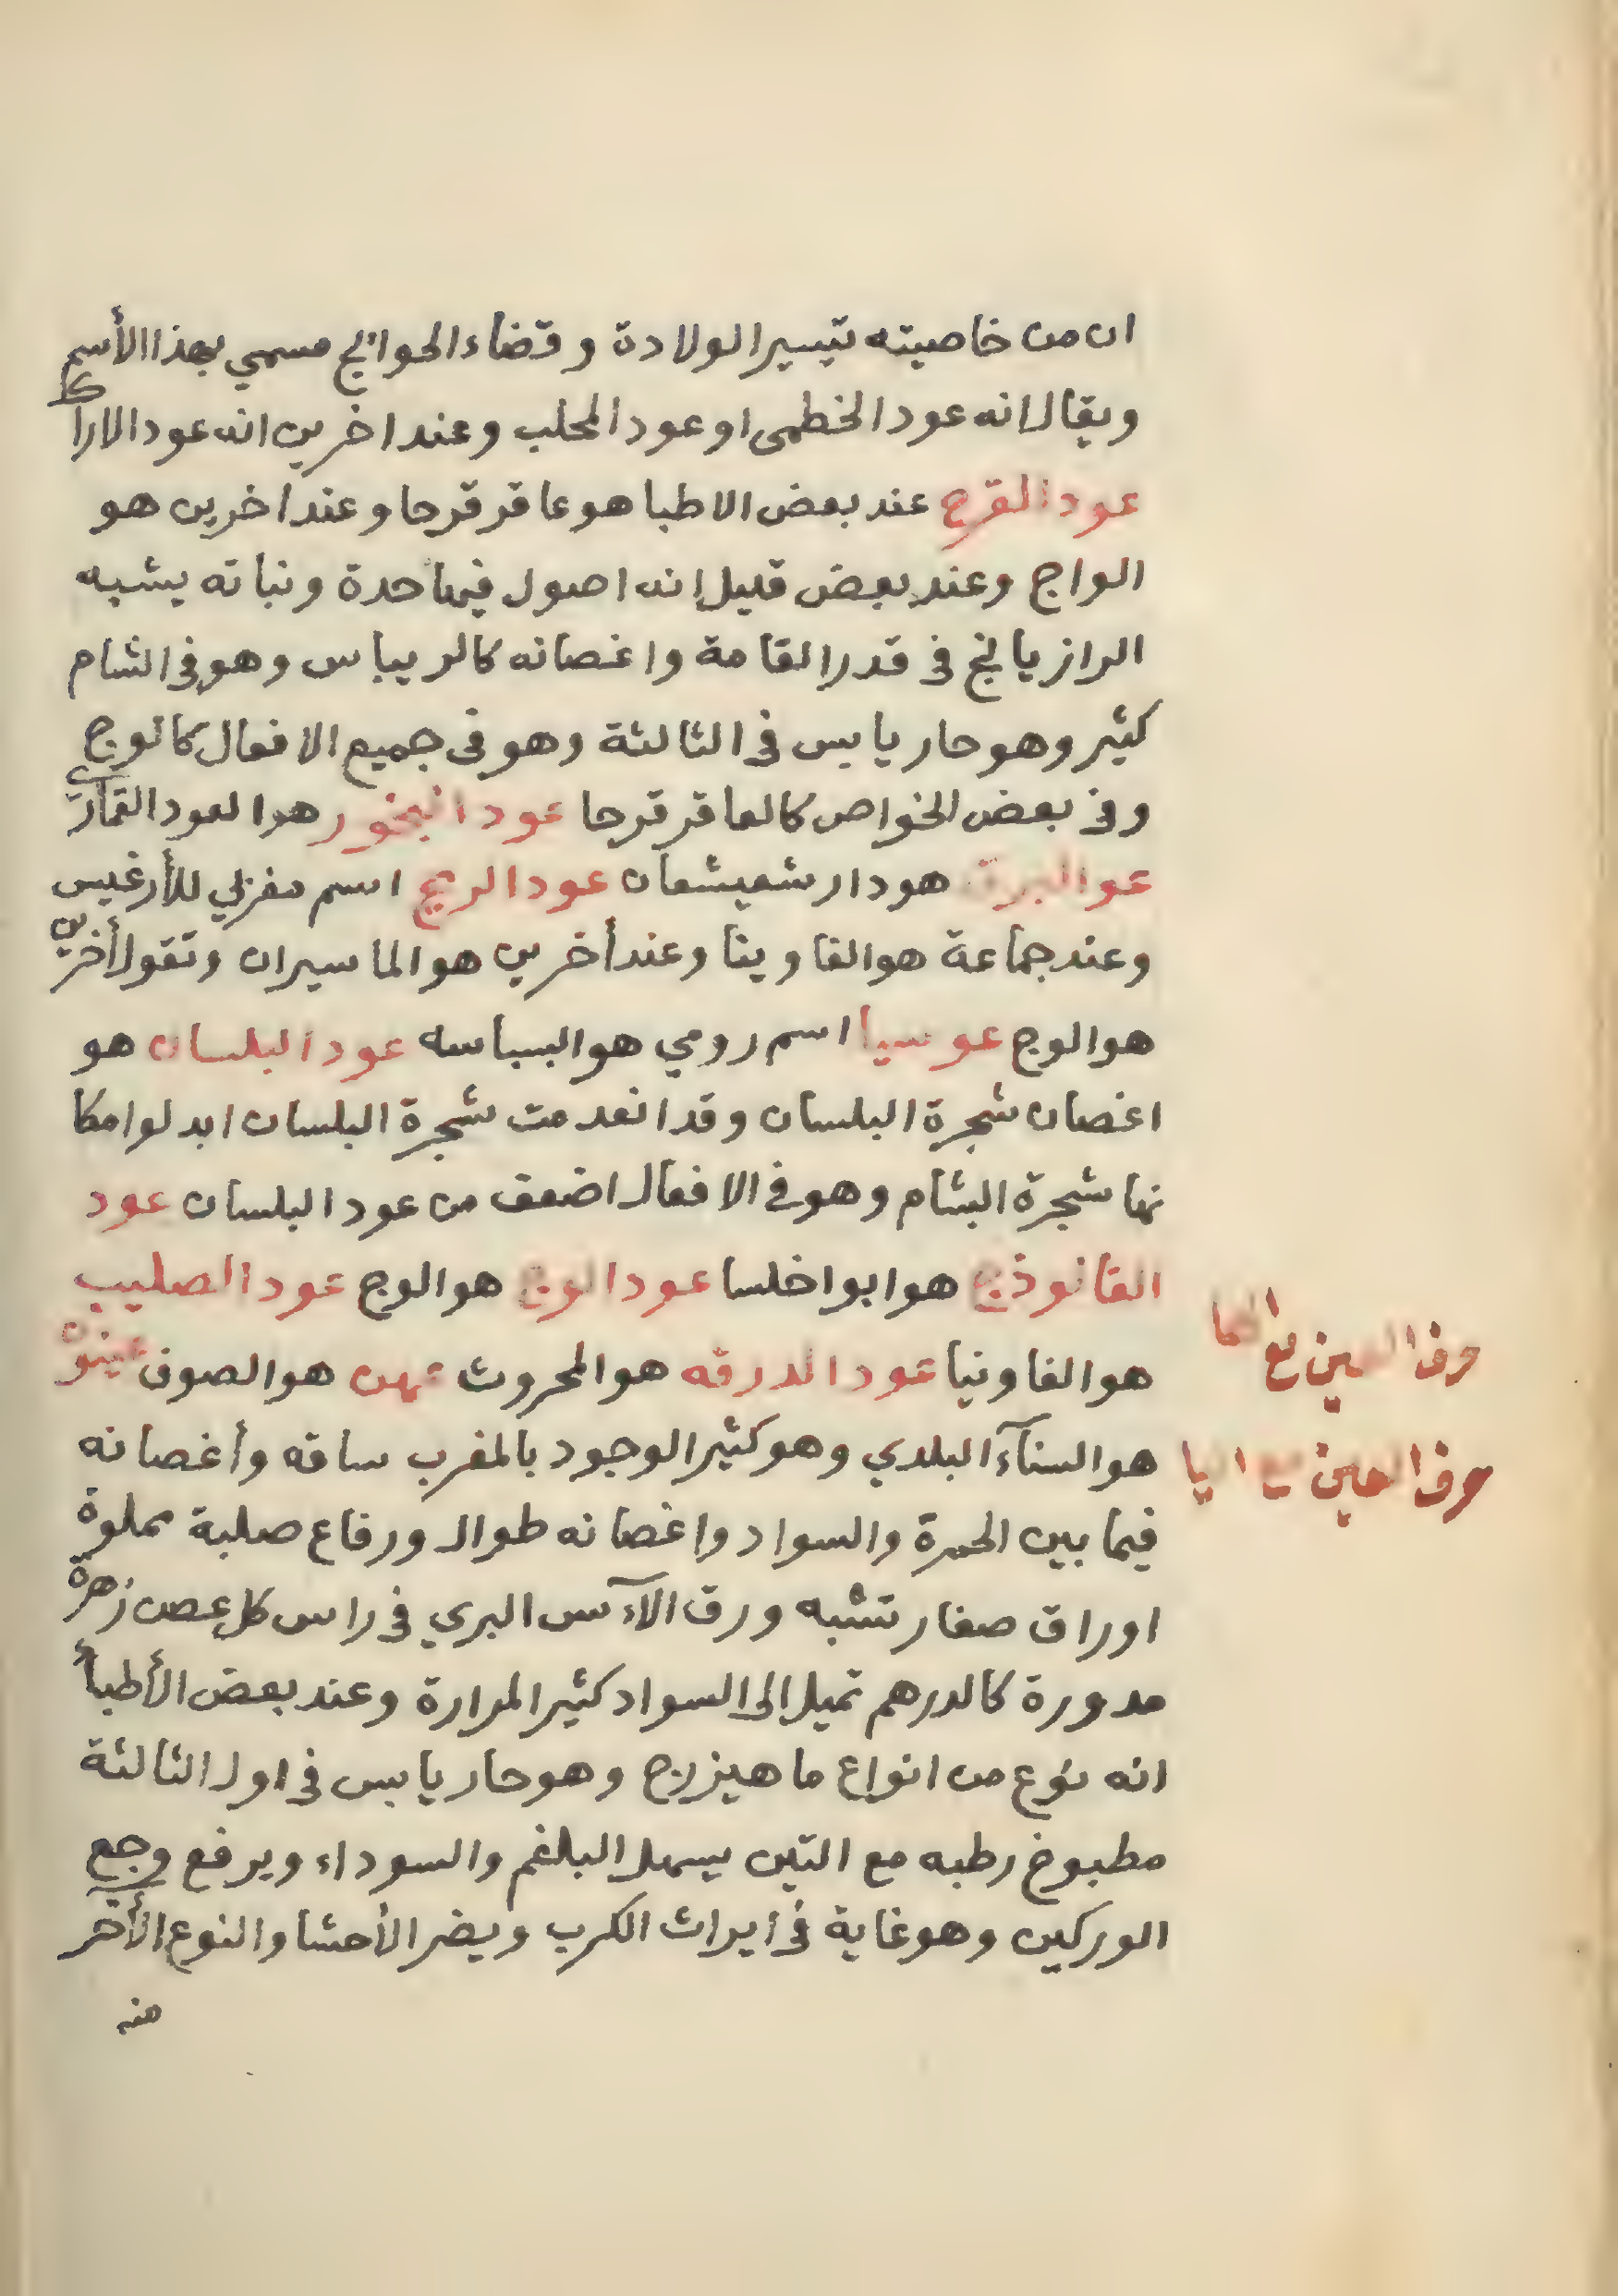 ان من خاصيته تيسير الولادة وقضاء الحوائج مسمي بهذا الأسم
ويقال انه عود الخطمى او عود المحلب وعند اخرين انه عود الاراك
عود القرح عند بعض الاطبا هو عاقر قرحا وعند اخرين هو
الواج وعند بعض قليل انه اصول فيها حدة ونباته يشبه
الرازيانج في قدر القامة واغصانه كالريباس وهو في الشام
كثير وهو حار يابس في الثالثة وهو في جميع الافعال كالوج
وفي بعض الخواص كالعاقر قرحا عود البخور هو العود القماري
عو البرق هو دار شعيشعان عود الريح اسم مغربي للأرغيس
وعند جماعة هو الفاوينا وعند أخرين هو الماسيران وتقول أخرين
هو الوج عوسيا اسم رومي هو البسباسه عود البلسان هو
اغصان شجرة البلسان وقد انعدمت شجرة البلسان ابدلوا مكا
نها شجرة البشام وهو في الافعال اضعف من عود البلسان عود
القانوذج هو ابو اخلسا عود الوج هو الوج عود الصليب
هو الفاونيا عود الدرقه هو المحروث عهن هو الصوف عينون
هو السنآء البلدي وهو كثير الوجود بالمغرب ساقه وأغصانه
فيما بين الحمرة والسواد واغصانه طوال ورفاع صلبة مملوة
اوراق صغار تشبه ورق الآس البري في راس كل عصن زهرة
مدورة كالدرهم تميل إلى السواد كثير المرارة وعند بعض الأطبأ
انه نوع من انواع ماهيزرج وهو حار يابس في اول الثالثة
مطبوخ رطبه مع التين يسهل البلغم والسوداء ويرفع وجع
الوركين وهو غاية في ايراث الكرب ويضر الأحشا والنوع الأخر
منه
حرف العين مع الها
حرف العين مع اليا